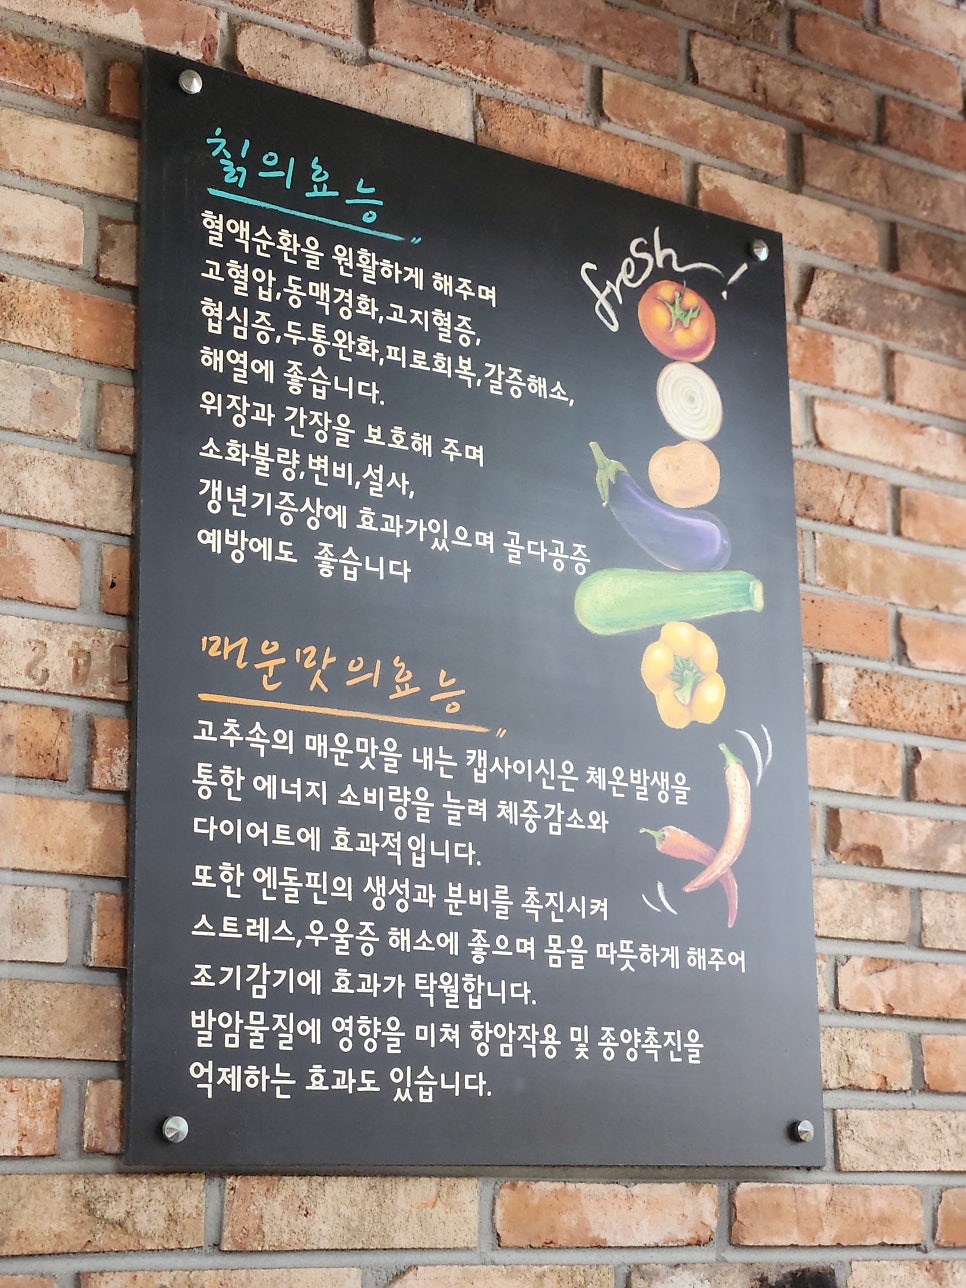 칡의효능
혈액순환을 원활하게 해주며
고혈압,동맥경화,고지혈증,
협심증,두통완화,피로회복,갈증해소,
해열에 좋습니다.
위장과 간장을 보호해 주며
소화불량,변비,설사,
갱년기증상에 효과가있으며 골다공증
예방에도 좋습니다
fresh!
매운맛의효능
고추속의 매운맛을 내는 캡사이신은 체온발생을
통한 에너지 소비량을 늘려 체중감소와
다이어트에 효과적입니다.
또한 엔돌핀의 생성과 분비를 촉진시켜
스트레스,우울증 해소에 좋으며 몸을 따뜻하게 해주어
조기감기에 효과가 탁월합니다.
발암물질에 영향을 미쳐 항암작용 및 종양촉진을
억제하는 효과도 있습니다.